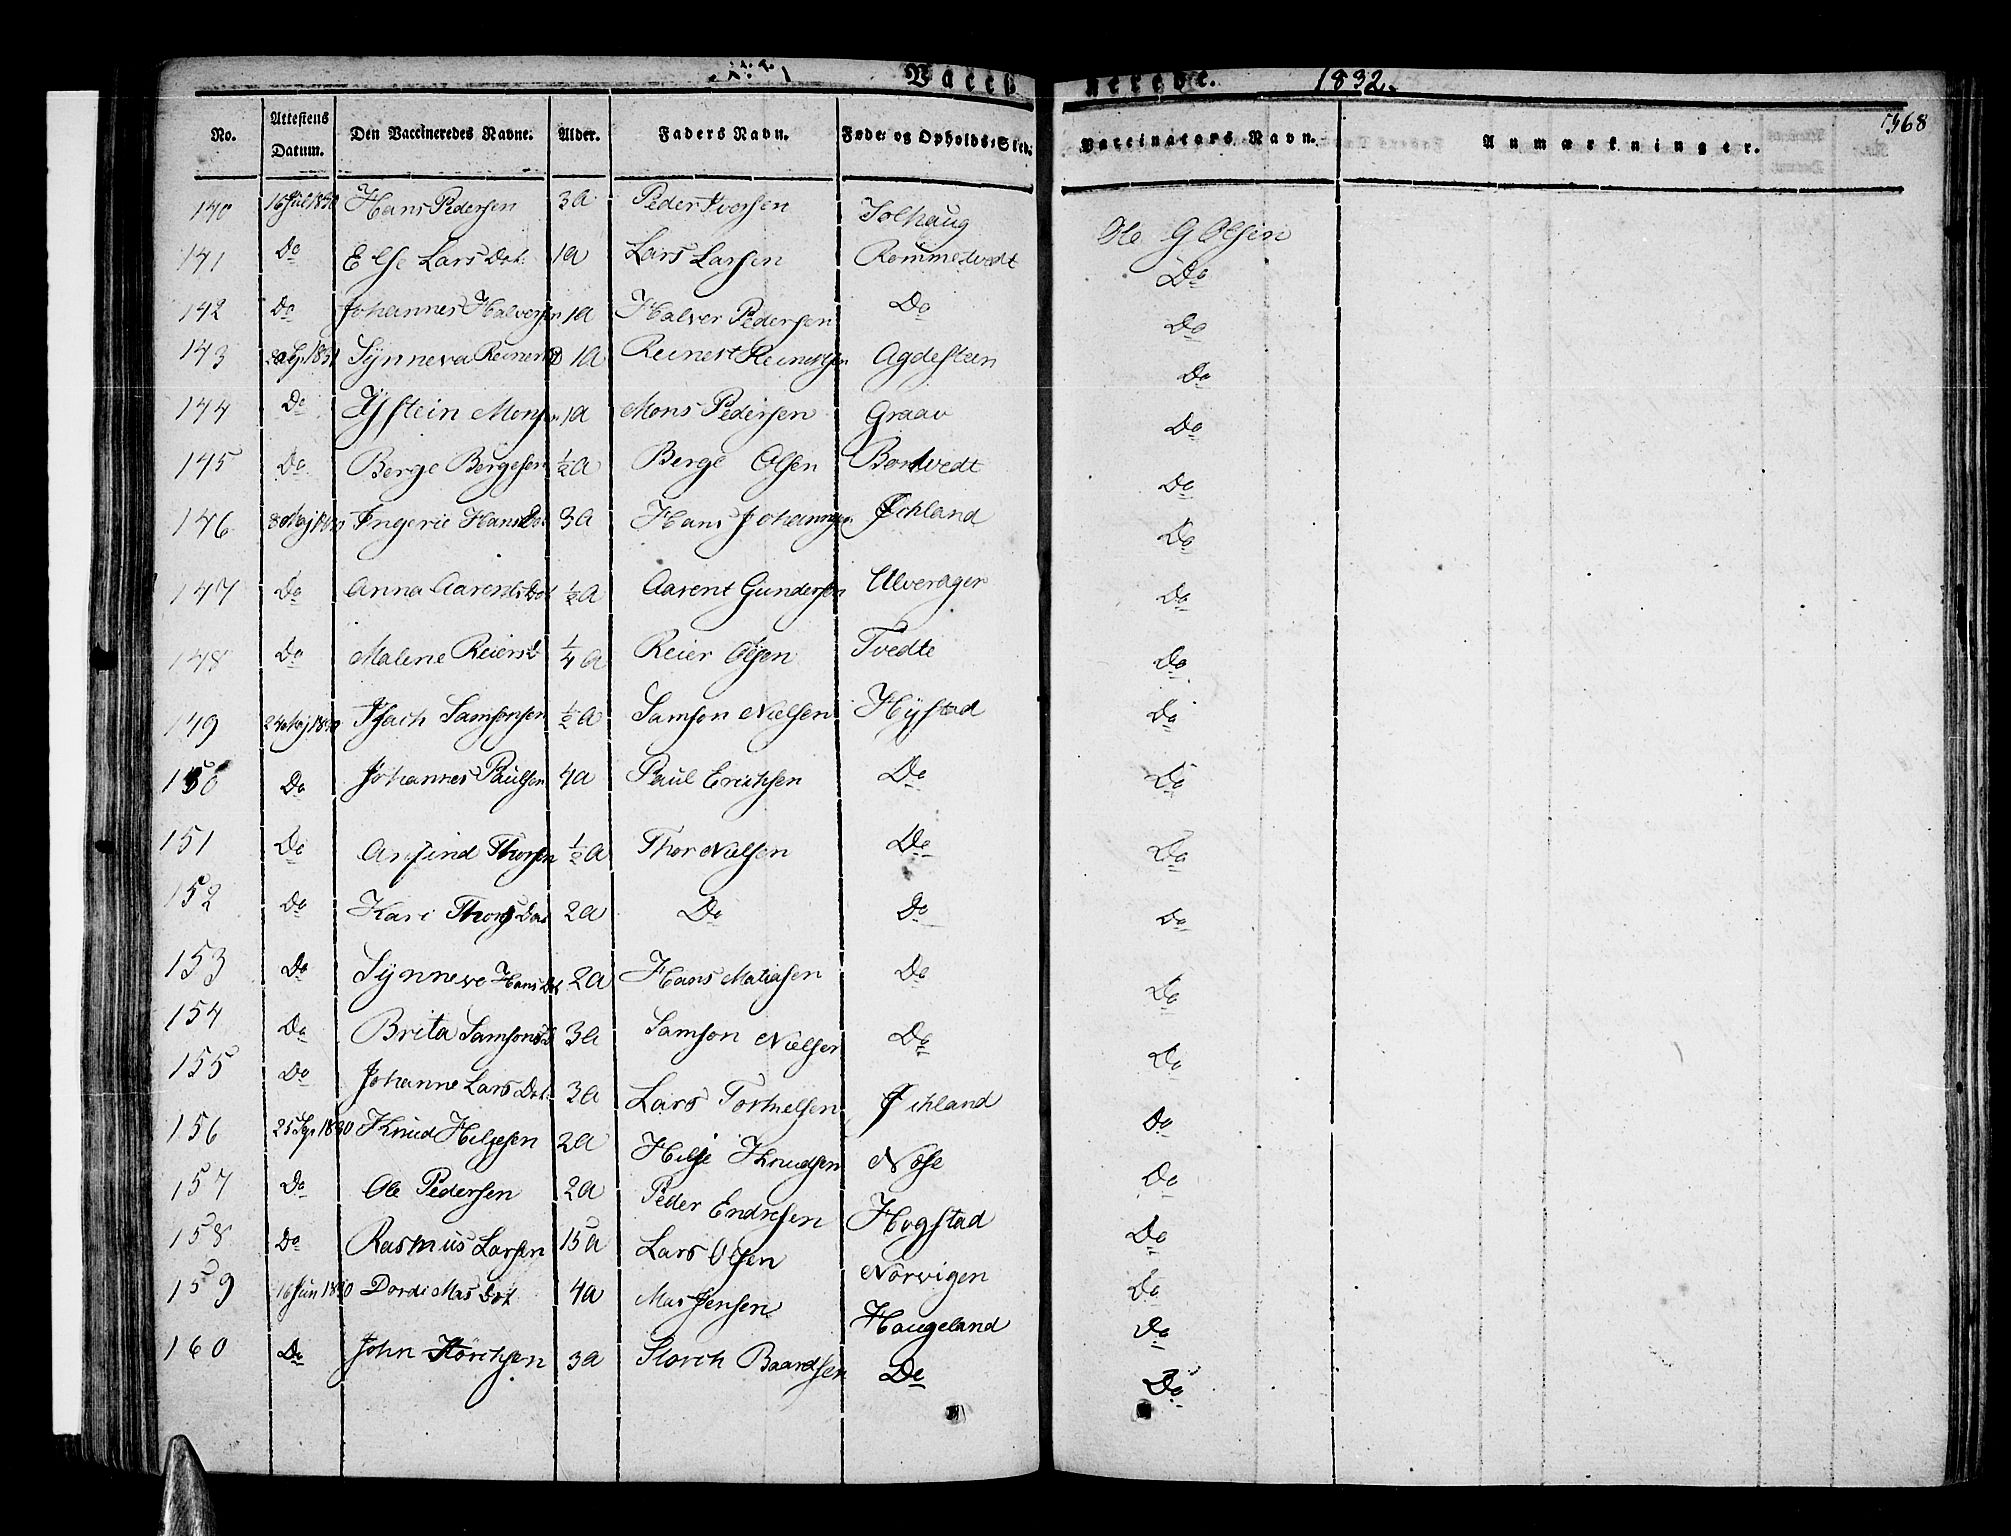 Vaccinerede. 1832.
368
No. Attestens Datum. Den Vaccineredes Navne. Alder. Faders Navn. Føde- og Opholds-Sted. Vaccinators Navn. Anmærkninger.
140 16 Jul 1830 Hans Pedersen 3a Peder Iversen Solhaug Ole G Olsen
141 Do Else Lars Dot. 1a Lars Larsen Rommetvedt Do
142 Do Johannes Halversen 1a Halver Pedersen Do Do
143 Sep 1831 Synneva Reinert D 1a Reinert Reinertsen Agdesteen Do
144 Do Øystein Monsen 1a Mons Pedersen Graav Do
145 Do Berge Bergesen ½a Berge Olsen Bortvedt Do
146 8 Maj Ingerie Hans Dot 3a Hans Johannesen Øchland Do
147 Do Anna Aarents Dot ½a Aarent Gundersen Ulverager Do
148 Do Malene Reiers D ¼a Reier Olsen Tvedte Do
149 24 Maj 1830 Isach Samsonsen ½a Samson Nielsen Hystad Do
150 Do Johannes Paulsen 4a Paul Erichsen Do Do
151 Do Anfind Thorsen ½a Thor Nielsen Do Do
152 Do Kari Thors Dot 2a Do Do Do
153 Do Synneve Hans Dot 2a Hans Matiasen Do Do
154 Do Brita Samsons D 3a Samson Nielsen Do Do
155 Do Johanne Lars Dot. 3a Lars Tormelsen Øchland Do
156 25 Sep 1830 Knud Helgesen 2a Helge Knudsen Nøse Do
157 Do Ole Pedersen 2a Peder Endresen Hogstad Do
158 Do Rasmus Larsen 15a Lars Olsen Norvigen Do
159 16 Jun 1830 Dordi Mas Dot 4a Mas Jensen Haugeland Do
160 Do John Störchsen 3a Storch Baardsen Do Do